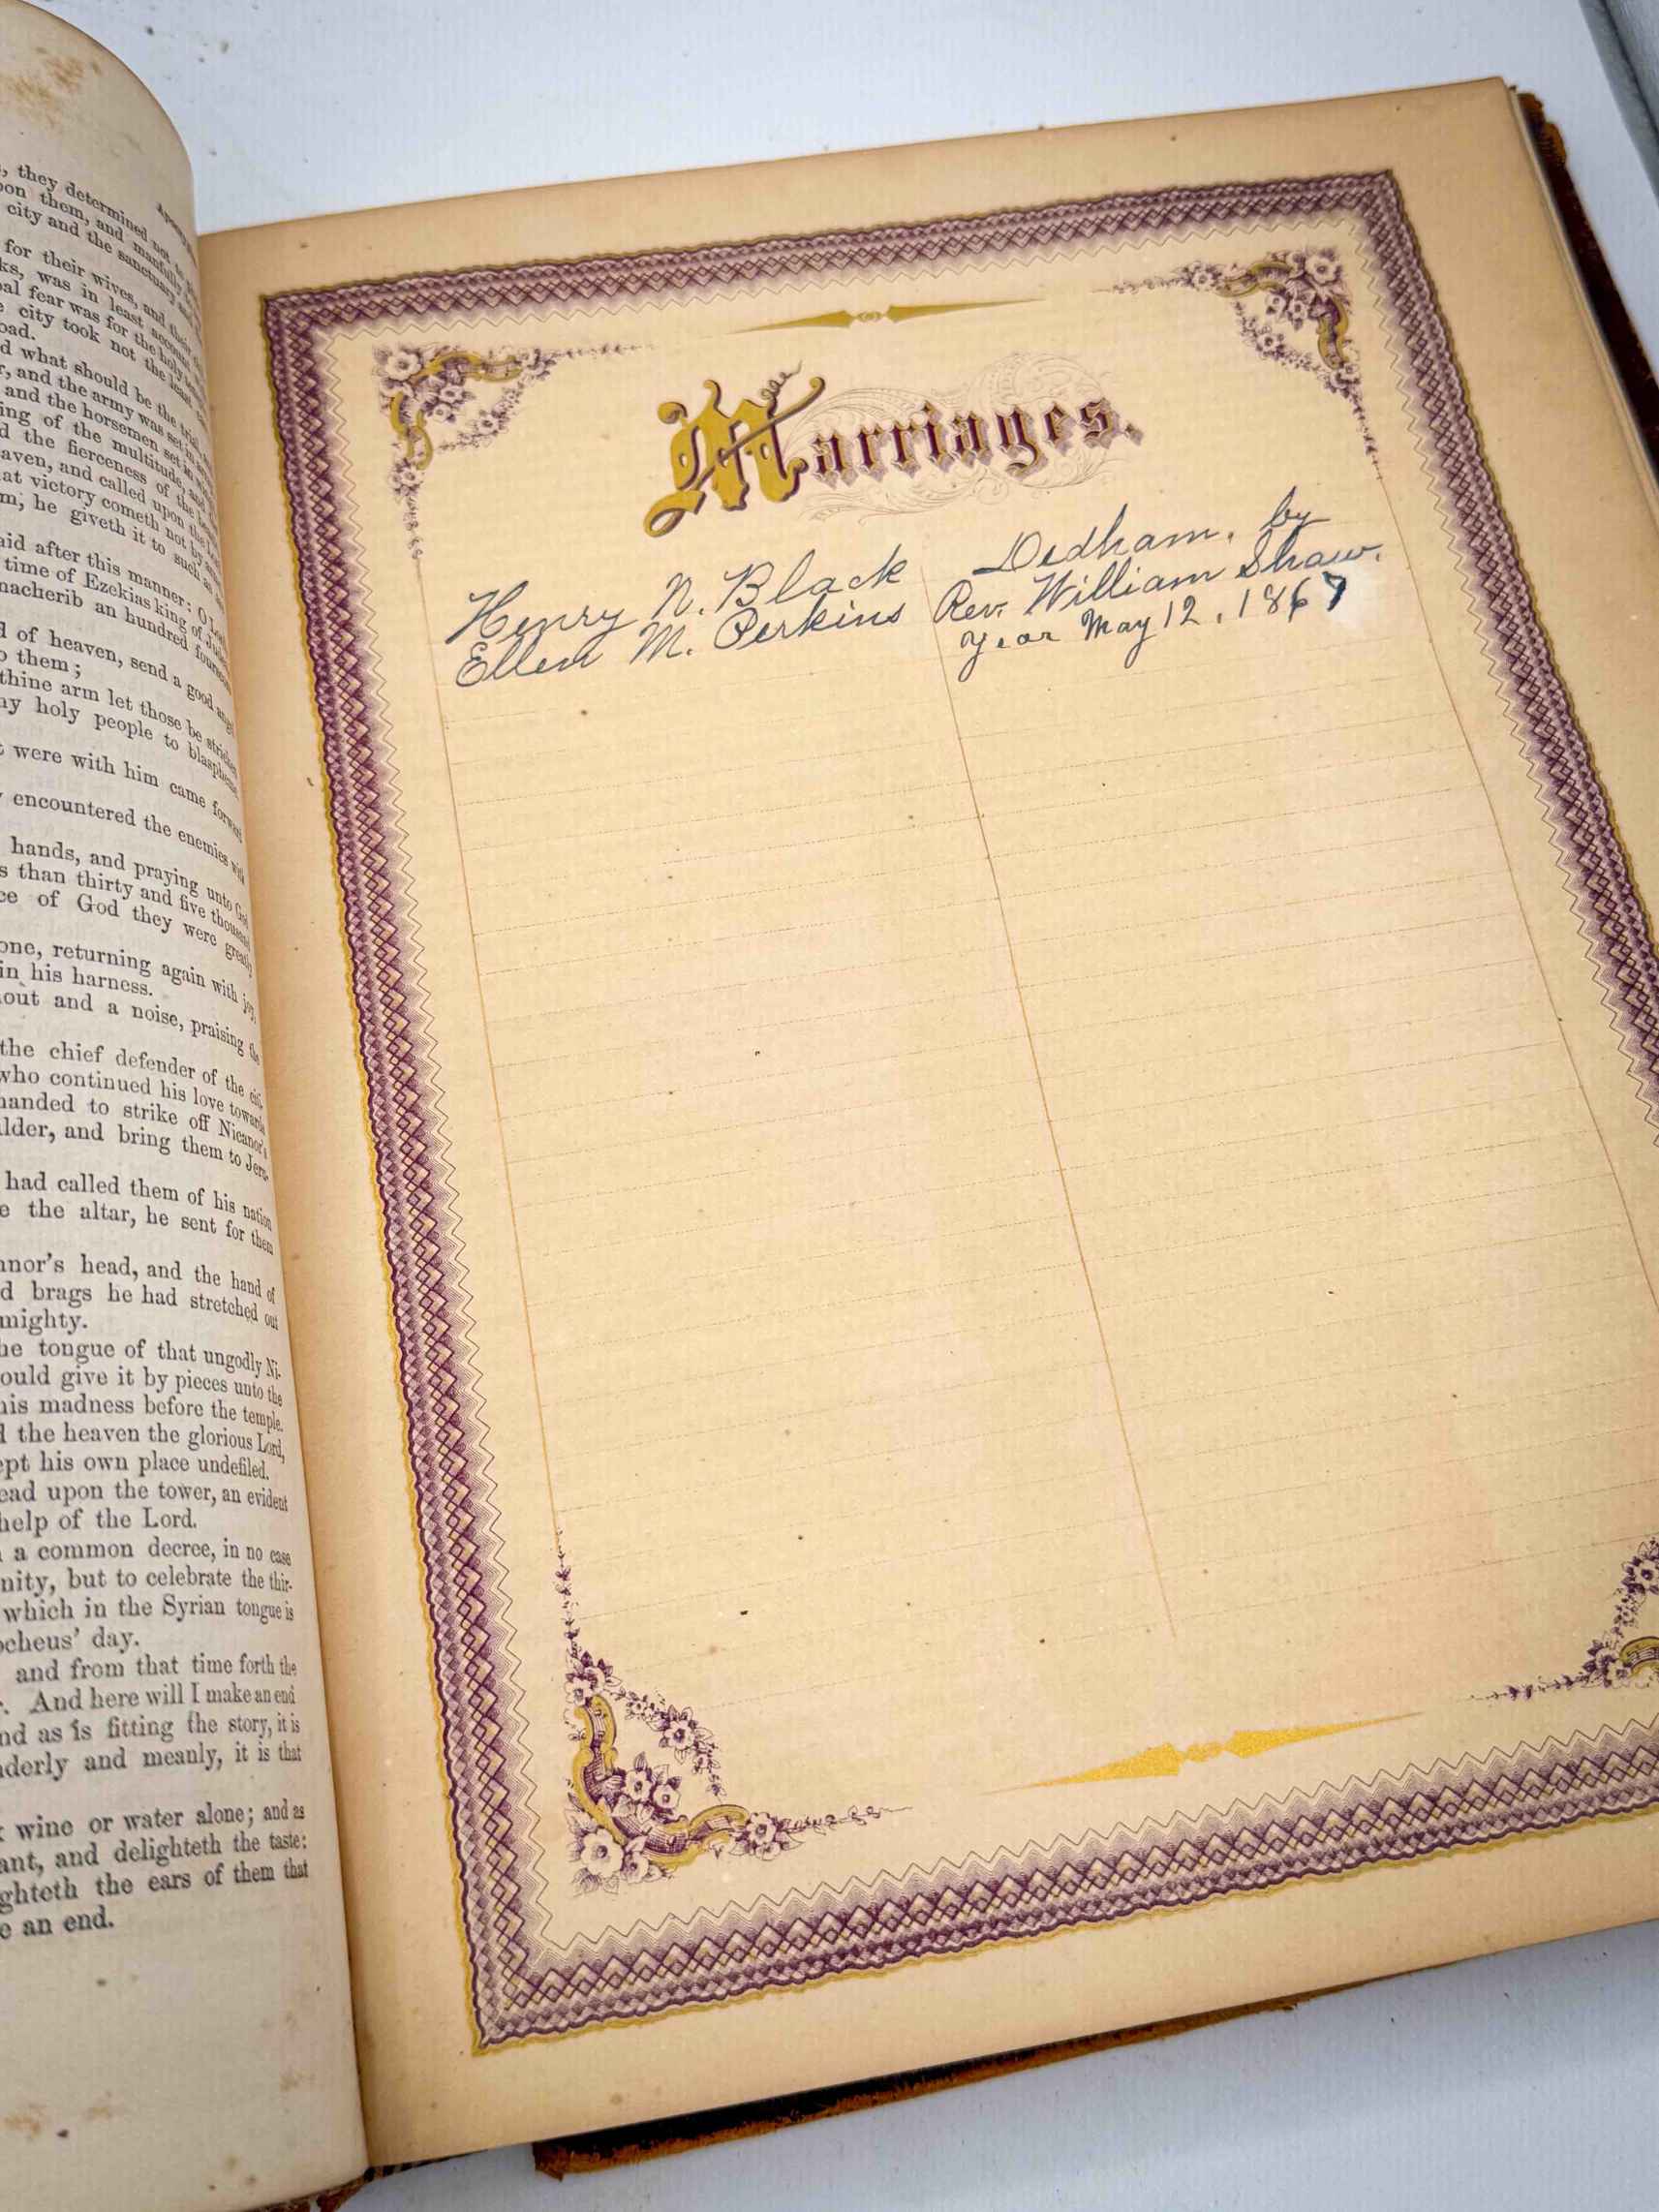 Apocrypha
, they determined not to
them, and manfully to
city and the sanctuary and
for their wives, and their
ks, was in least account
pal fear was for the holy temple
city took not the least
oad.
d what should be the trial,
r, and the army was set in
and the horsemen set in
ing of the multitude, and
d the fierceness of the
aven, and called upon the Lord
at victory cometh not by arms
m, he giveth it to such as
aid after this manner: O Lord
time of Ezekias king of Judea
nacherib an hundred fourscore
d of heaven, send a good angel
o them;
thine arm let those be stricken
hy holy people to blaspheme.
t were with him came forward
y encountered the enemies with
hands, and praying unto God
s than thirty and five thousand
ce of God they were greatly
one, returning again with joy,
in his harness.
out and a noise, praising the
the chief defender of the
who continued his love towards
manded to strike off Nicanor's
ulder, and bring them to Jeru-
had called them of his nation
e the altar, he sent for them
anor's head, and the hand of
d brags he had stretched out
mighty.
he tongue of that ungodly Ni-
ould give it by pieces unto the
his madness before the temple.
d the heaven the glorious Lord,
ept his own place undefiled.
ead upon the tower, an evident
help of the Lord.
a common decree, in no case
nity, but to celebrate the thir-
which in the Syrian tongue is
ocheus' day.
and from that time forth the
r. And here will I make an end
nd as is fitting the story, it is
nderly and meanly, it is that
wine or water alone; and as
ant, and delighteth the taste:
ghteth the ears of them that
e an end.
Marriages.
Henry N. Black Dedham, by
Ellen M. Perkins Rev. William Shaw.
Year May 12, 1867